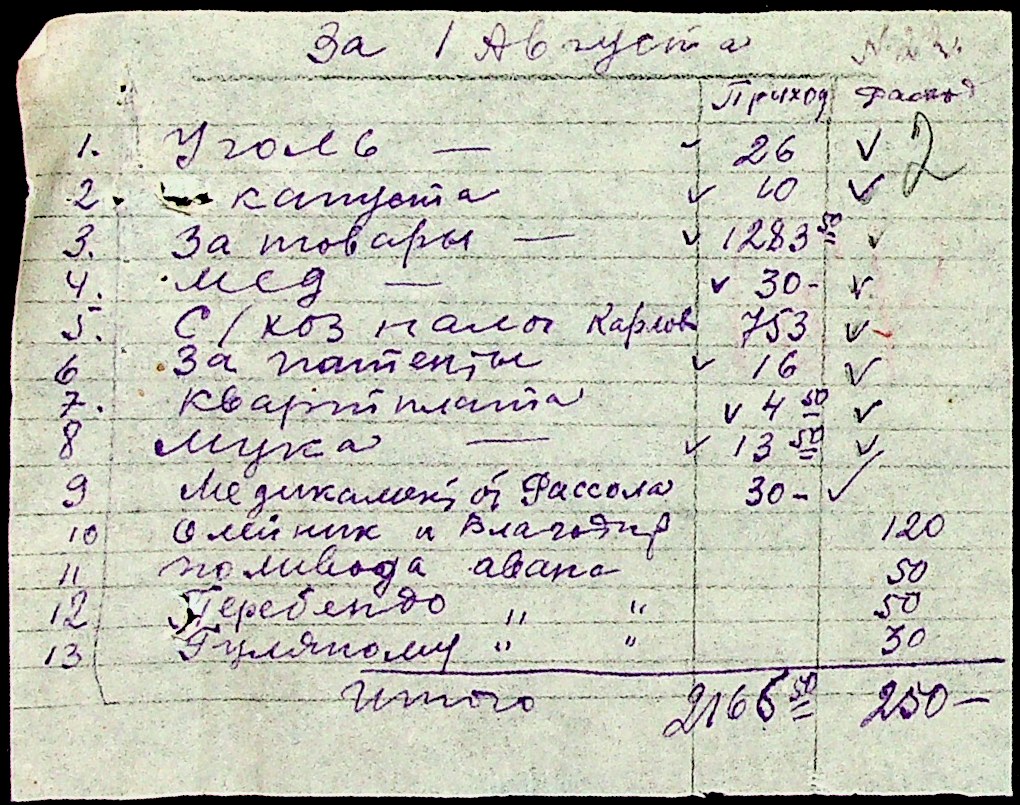 За 1 Августа № 22.
Приход Расход
1. Уголь — 26 2
2. капуста 10
3. За товары — 1283 50
4. мед — 30-
5. С/хоз налог Карлов 753
6 За патенты 16
7. Квартплата 4 50
8 мука — 13 50
9 Медикамент от Фассола 30-
10 Олейник и Владимир 120
11 поливода аванс 50
12 Перебендо " " 50
13 Гулякому " " 30
Итого 2166 50 250-